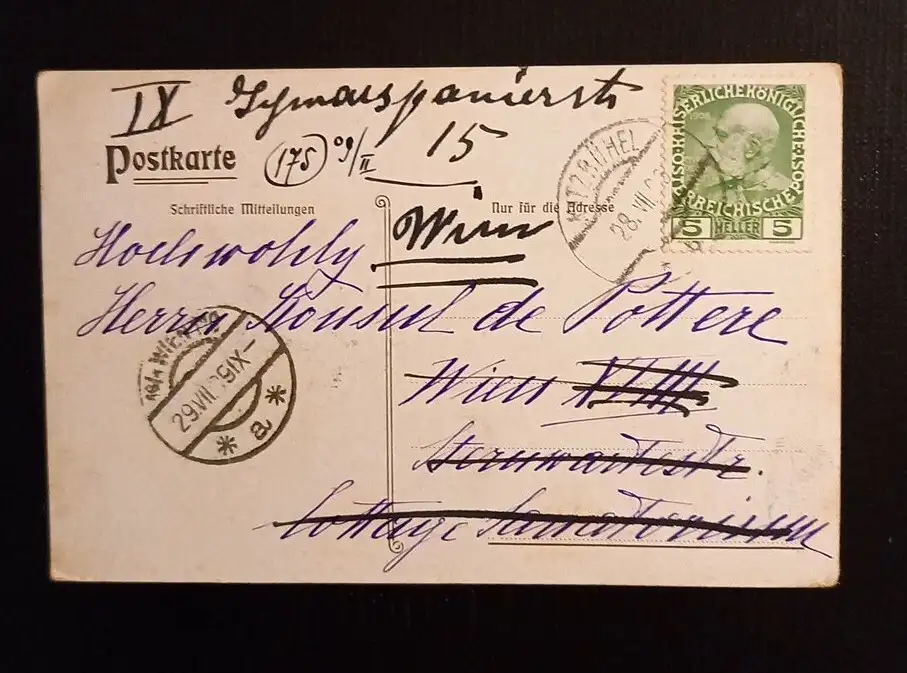 IX
15
Postkarte
(175) 09/II
Schriftliche Mitteilungen
Nur für die Adresse
Wien
Hochwohlg
Herrn Konsul de Pottere
Wien XVIII
Sternwartestr.
Cottage Sanatorium
KITZBÜHEL
28.VII.
KAISERLICHEKÖNIGLICHE
1908
ÖSTERREICHISCHE POST
5 HELLER 5
WIEN
29.VII. 9 IX-
* a *